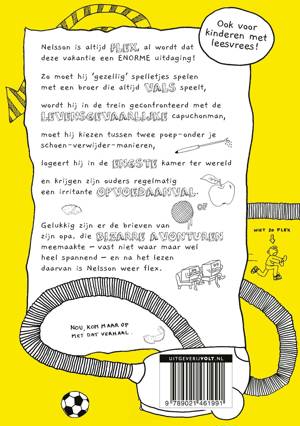 Ook voor
kinderen met
leesvrees!
Nelsson is altijd FLEX, al wordt dat
deze vakantie een ENORME uitdaging!
Zo moet hij 'gezellig' spelletjes spelen
met een broer die altijd VALS speelt,
wordt hij in de trein geconfronteerd met de
LEVENSGEVAARLIJKE capuchonman,
moet hij kiezen tussen twee poep-onder je
schoen-verwijder-manieren,
logeert hij in de ENGSTE kamer ter wereld
en krijgen zijn ouders regelmatig
een irritante OPVOEDAANVAL.
OF
Gelukkig zijn er de brieven van
zijn opa, die BIZARRE AVONTUREN
meemaakte – vast niet waar maar wel
heel spannend – en na het lezen
daarvan is Nelsson weer flex.
NIET ZO FLEX
NOU, KOM MAAR OP
MET DAT VERHAAL.
UITGEVERIJVOLT.NL
9 789021 461991